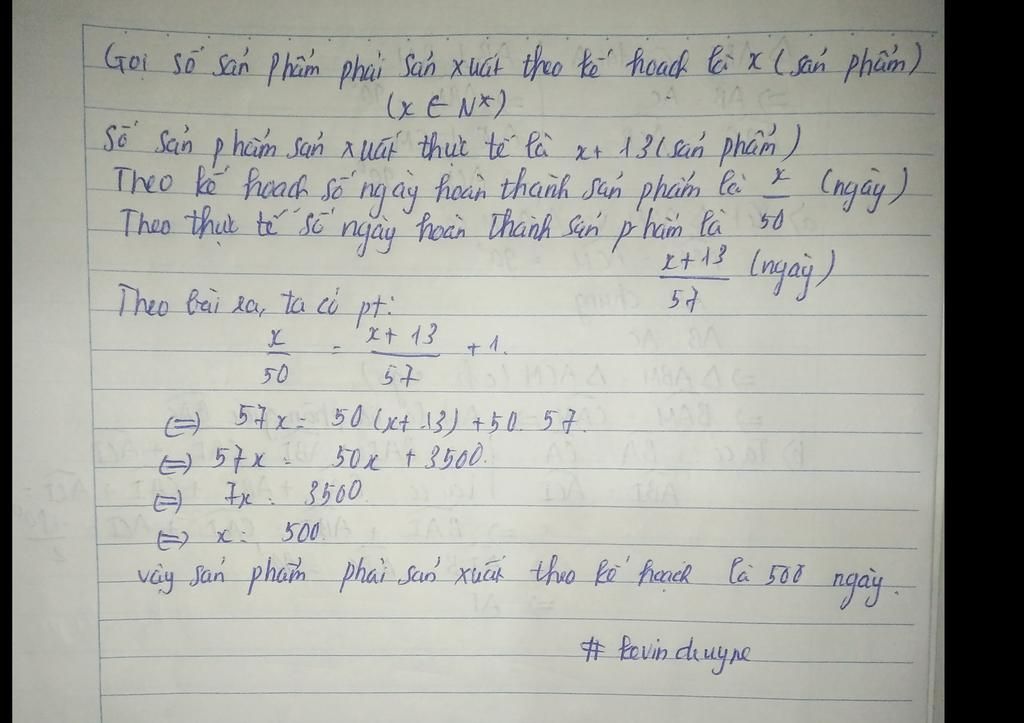 Gọi số sản phẩm phải sản xuất theo kế hoạch là x (sản phẩm)
(x ∈ N*)
Số sản phẩm sản xuất thực tế là x + 13 (sản phẩm)
Theo kế hoạch số ngày hoàn thành sản phẩm là x/50 (ngày)
Theo thực tế số ngày hoàn thành sản phẩm là
x+13/57 (ngày)
Theo bài ra, ta có pt:
x/50 = x+13/57 + 1.
<=> 57x = 50(x+13) + 50.57.
<=> 57x = 50x + 3500.
<=> 7x = 3500
<=> x = 500
vậy sản phẩm phải sản xuất theo kế hoạch là 500 ngày.